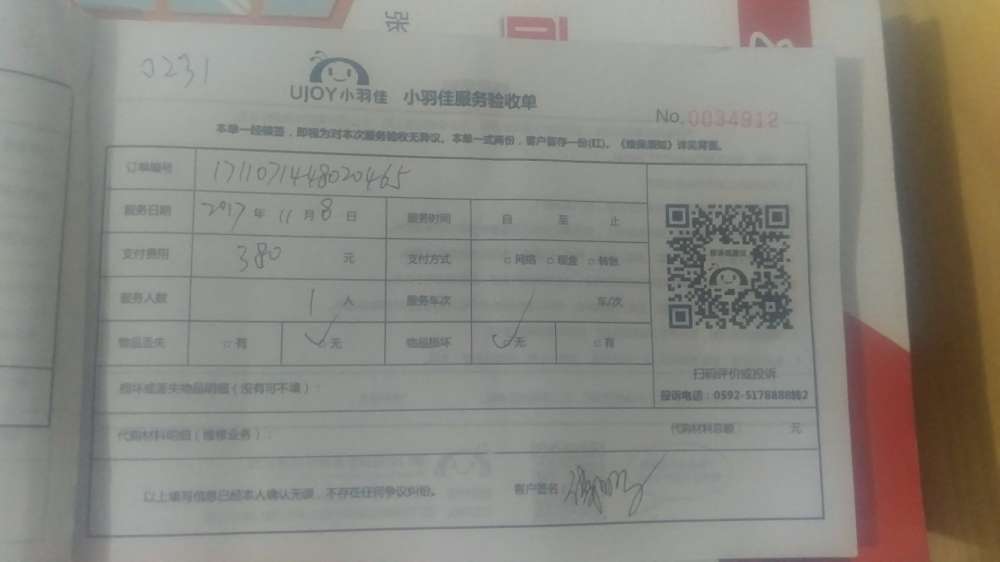 0231
UJOY小羽佳 小羽佳服务验收单
No.0034912
本单一经接签，即视为对本次服务验收无异议。本单一式两份，客户留存一份(红)。《维保须知》详见背面。
订单编号 1711071448020465
服务日期 2017年11月8日 服务时间 自 至 止
支付费用 380 元 支付方式 □网络 □现金 □转账
服务人数 1 人 服务车次 / 车/次
物品丢失 □有 ✓无 物品损坏 ✓无 □有
扫码评价或投诉
投诉电话：0592-5178888转2
损坏或丢失物品明细（没有可不填）：
代购材料明细（维修业务）： 代购材料总额 元
以上填写信息已经本人确认无误，不存在任何争议纠纷。 客户签名：